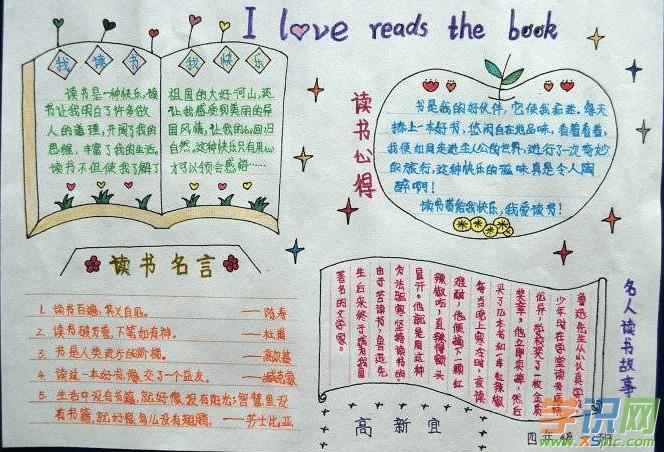 I love reads the book
我读书 我快乐
读书是一种快乐,读
书让我明白了许多做
人的道理,开阔了我的
思维,丰富了我的生活。
读书不但使我了解了
祖国的大好河山,还
让我感到美丽的异
国风情,让我的心回归
自然,这种快乐只有用心
才可以领会感好……
读书心得
书是我的好伙伴,它使我着迷。每天
捧上一本好书,悠闲自在地品味,看着看着,
我便如同走进主人公的世界,进行了一次奇妙
的旅行,这种快乐的滋味真是令人陶
醉啊!
读书带给我快乐,我爱读书!
读书名言
1. 读书百遍,其义自见。 ——陈寿
2. 读书破万卷,下笔如有神。 ——杜甫
3. 书是人类进步的阶梯。 ——高尔基
4. 读过一本好书,像交了一个益友。 ——臧克家
5. 生活中没有书籍,就好像没有阳光;智慧里没
有书籍,就好像鸟儿没有翅膀。 ——莎士比亚
名人读书故事
鲁迅先生从小认真学习。
少年时在学堂读书,成绩
优异,学校奖了一枚金质
奖章,他立即卖掉,然后
买了几本书和一串红辣椒
每当晚上寒冷时,夜读
难耐,他便摘下一颗红
辣椒吃,直辣得额头
冒汗。他就是用这种
办法驱寒坚持读书的。
由于苦读书,鲁迅先
生后来终于成为我国
著名的文学家。
高新宜
四年级 班
学识网
XSpic.com